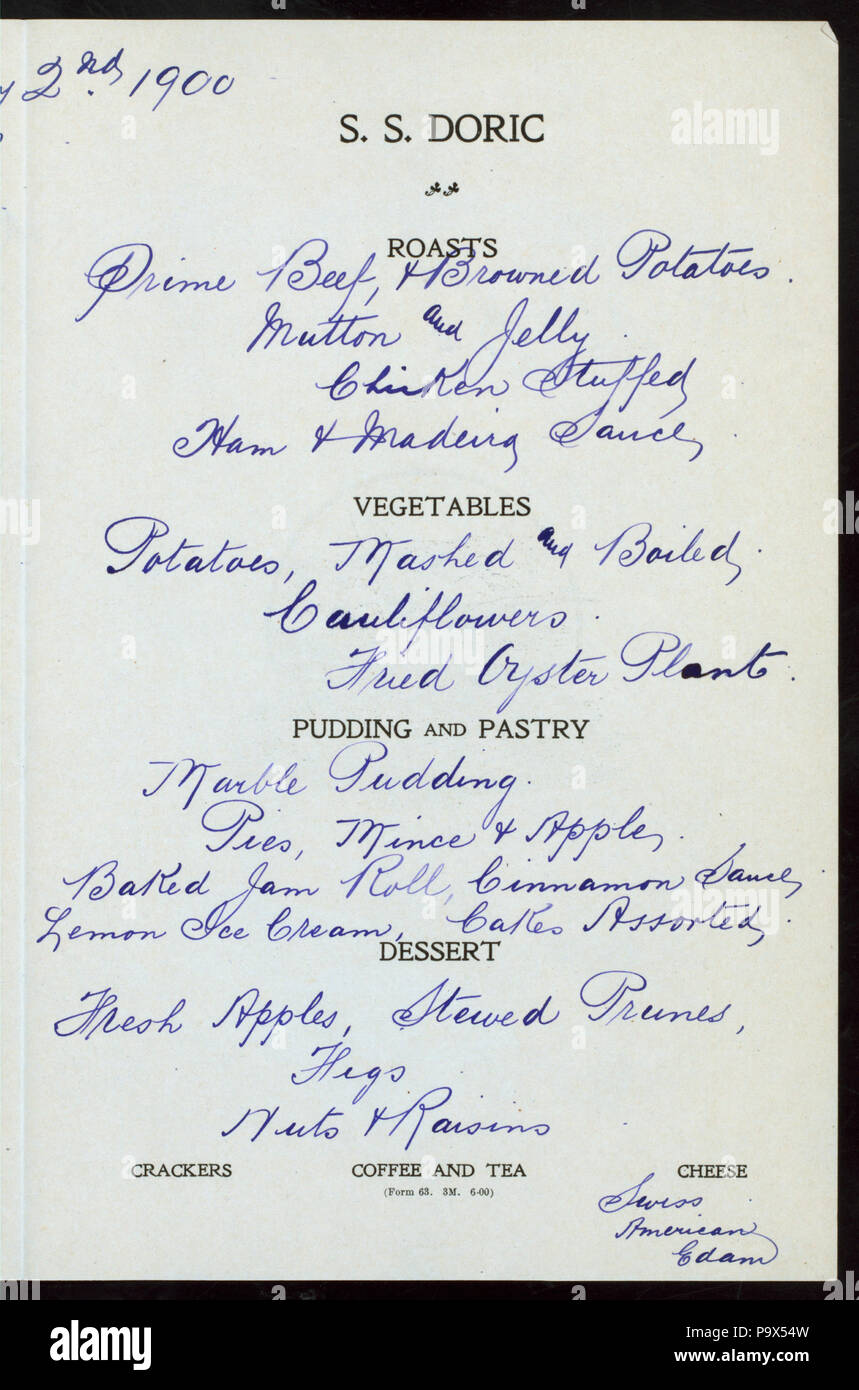 2nd, 1900
S. S. DORIC
ROASTS
Prime Beef, & Browned Potatoes.
Mutton and Jelly.
Chicken Stuffed,
Ham & Madeira Sauce,
VEGETABLES
Potatoes, Mashed and Boiled,
Cauliflowers.
Fried Oyster Plant.
PUDDING AND PASTRY
Marble Pudding.
Pies, Mince & Apple,
Baked Jam Roll, Cinnamon Sauce,
Lemon Ice Cream, Cakes Assorted,
DESSERT
Fresh Apples, Stewed Prunes,
Figs
Nuts & Raisins
CRACKERS COFFEE AND TEA CHEESE
(Form 63. 3M. 6-00)
Swiss
American
Edam
alamy
alamy
alamy
Image ID: P9X54W
www.alamy.com